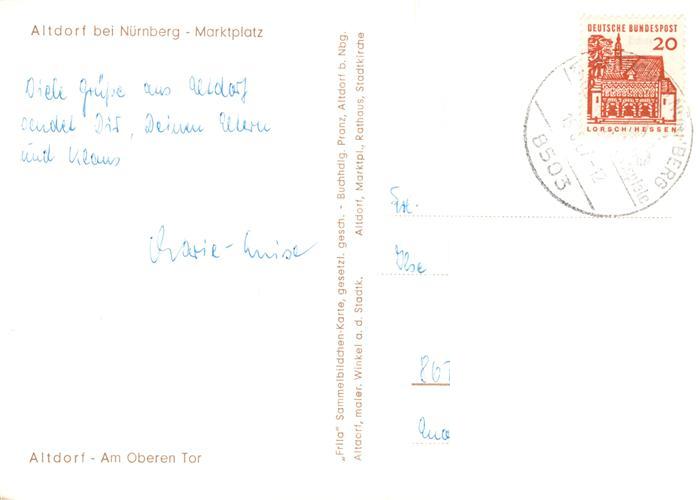 Altdorf bei Nürnberg - Marktplatz
Viele Grüße aus Altdorf
sendet Dir, Deinen Eltern
und Klaus
Marie-Luise
Altdorf - Am Oberen Tor
„Frila" Sammelbildchen-Karte, gesetzl. gesch. - Buchhdlg. Pranz, Altdorf b. Nbg.
Altdorf, maler. Winkel a. d. Stadtk. Altdorf, Marktpl., Rathaus, Stadtkirche
DEUTSCHE BUNDESPOST
20
LORSCH/HESSEN
8503
Frl.
Ilse